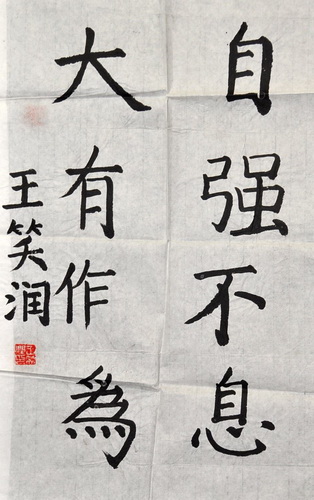 自强不息
大有作為
王笑润